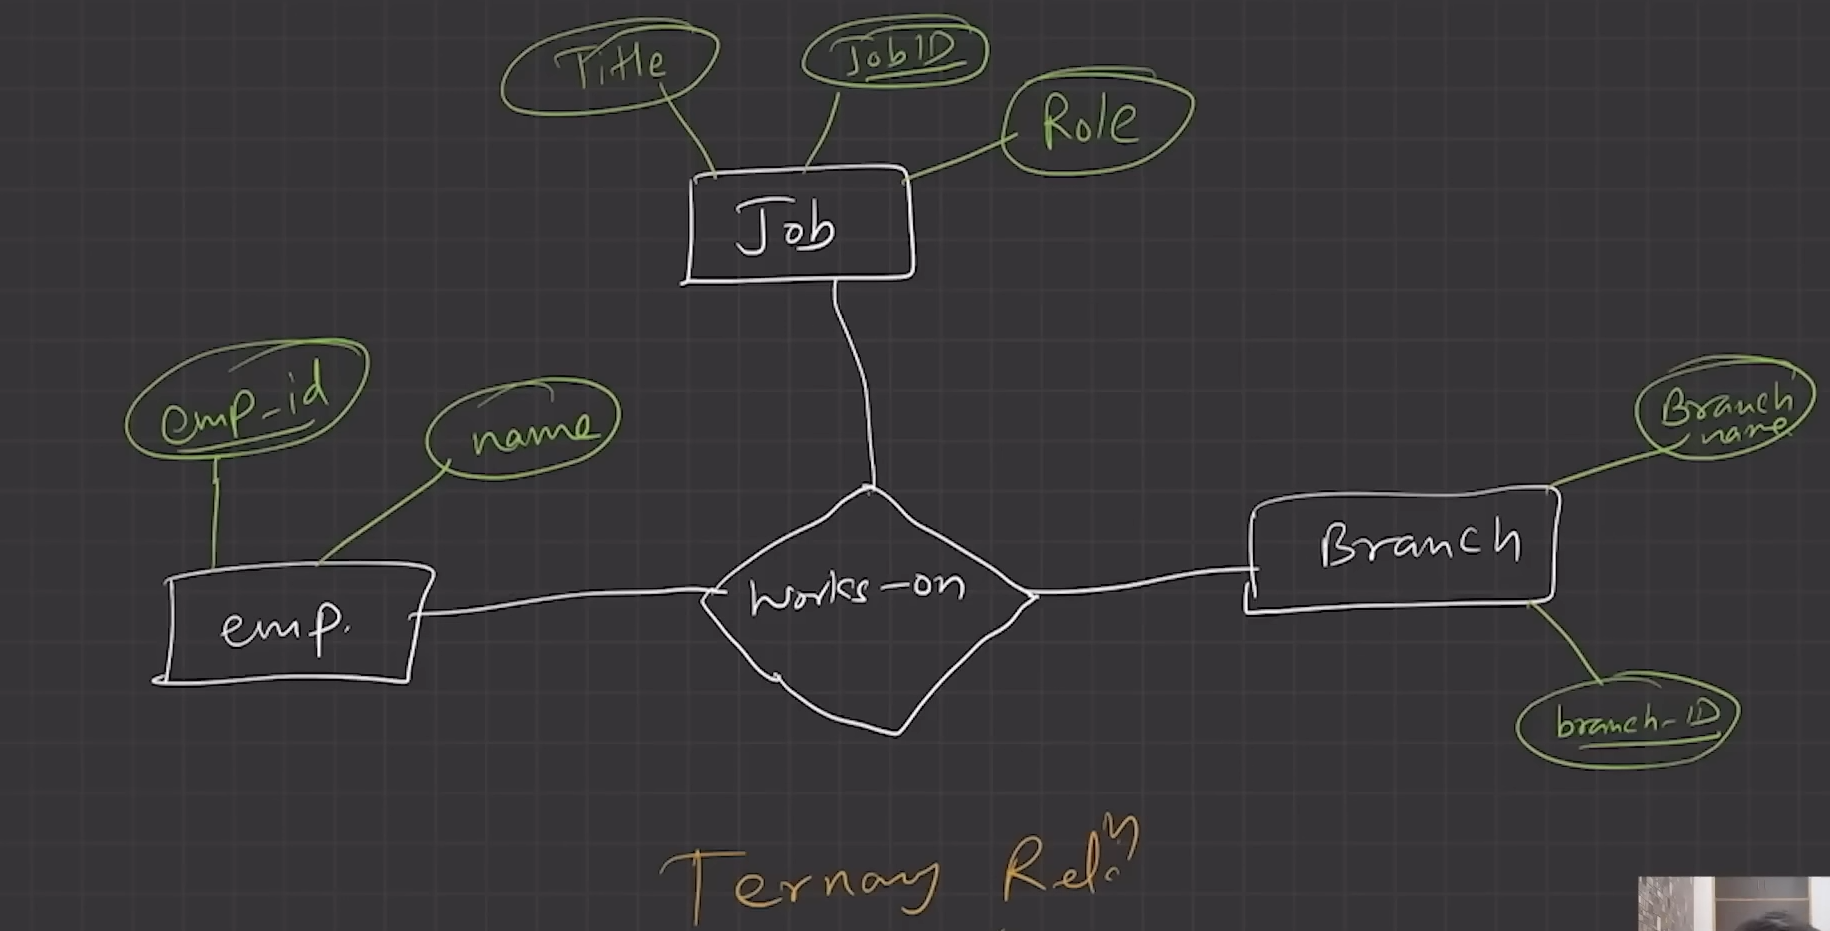 Title
JobID
Role
Job
emp_id
name
Branch
name
emp.
works-on
Branch
branch-ID
Ternary Relⁿ